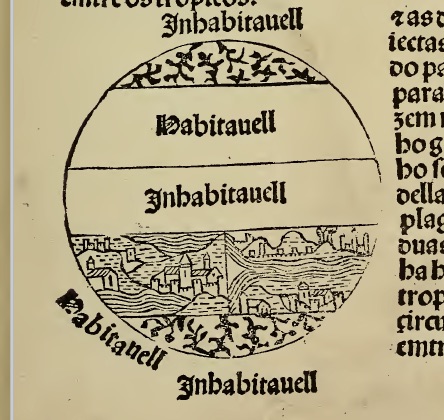 emtre os tropicos:
Inhabitauell
Habitauell
Inhabitauell
Habitauell
Inhabitauell
⁊ as d
iectas
do pa
para
zem
ho g
ho
della
plag
duas
ha b
trop
circu
emtr